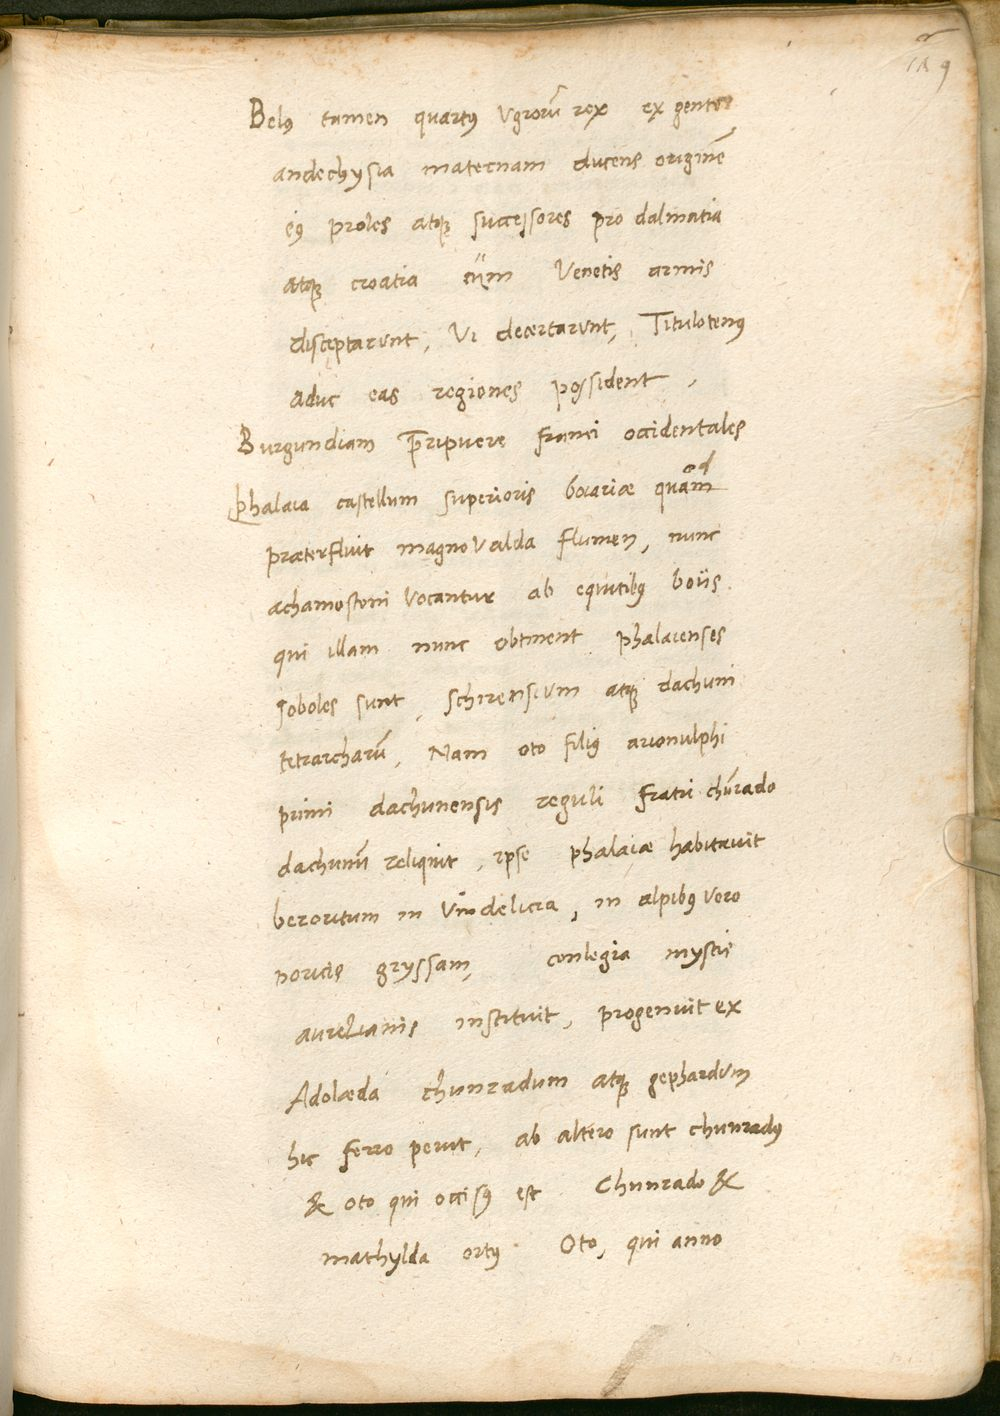 Belꝰ tamen quartꝰ Vgrorū rex ex gente
andechysia maternam ducens originē
eiꝰ proles atqꝫ successores pro dalmatia
atqꝫ croatia cum Venetis armis
disceptarunt, Vi decertarunt, Titulotenꝰ
aduc eas regiones possident,
Burgundiam p̄ripuere franci occidentales
Phalaia castellum superioris boiariæ quod
præterfluit magno Valda flumen, nunc
achamostoni Vocantur ab equitibꝰ boiis
qui illam nunc obtinent phalaienses
soboles sunt, schirensium atqꝫ dachuni
tetrarcharū, Nam oto filiꝰ arionulphi
primi dachunensis reguli fratri chūrado
dachunū reliquit, ipse phalaiæ habitauit
beroritum in Vindelicia, in alpibꝰ Vero
noricis gryssam, conlegia mystis
aurelianis instituit, progenuit ex
Adolæda chunradum atqꝫ gephardum
hic ferro periit, ab altero sunt chunradꝰ
& oto qui occisꝰ est Chunrado &
mathylda ortꝰ Oto, qui anno